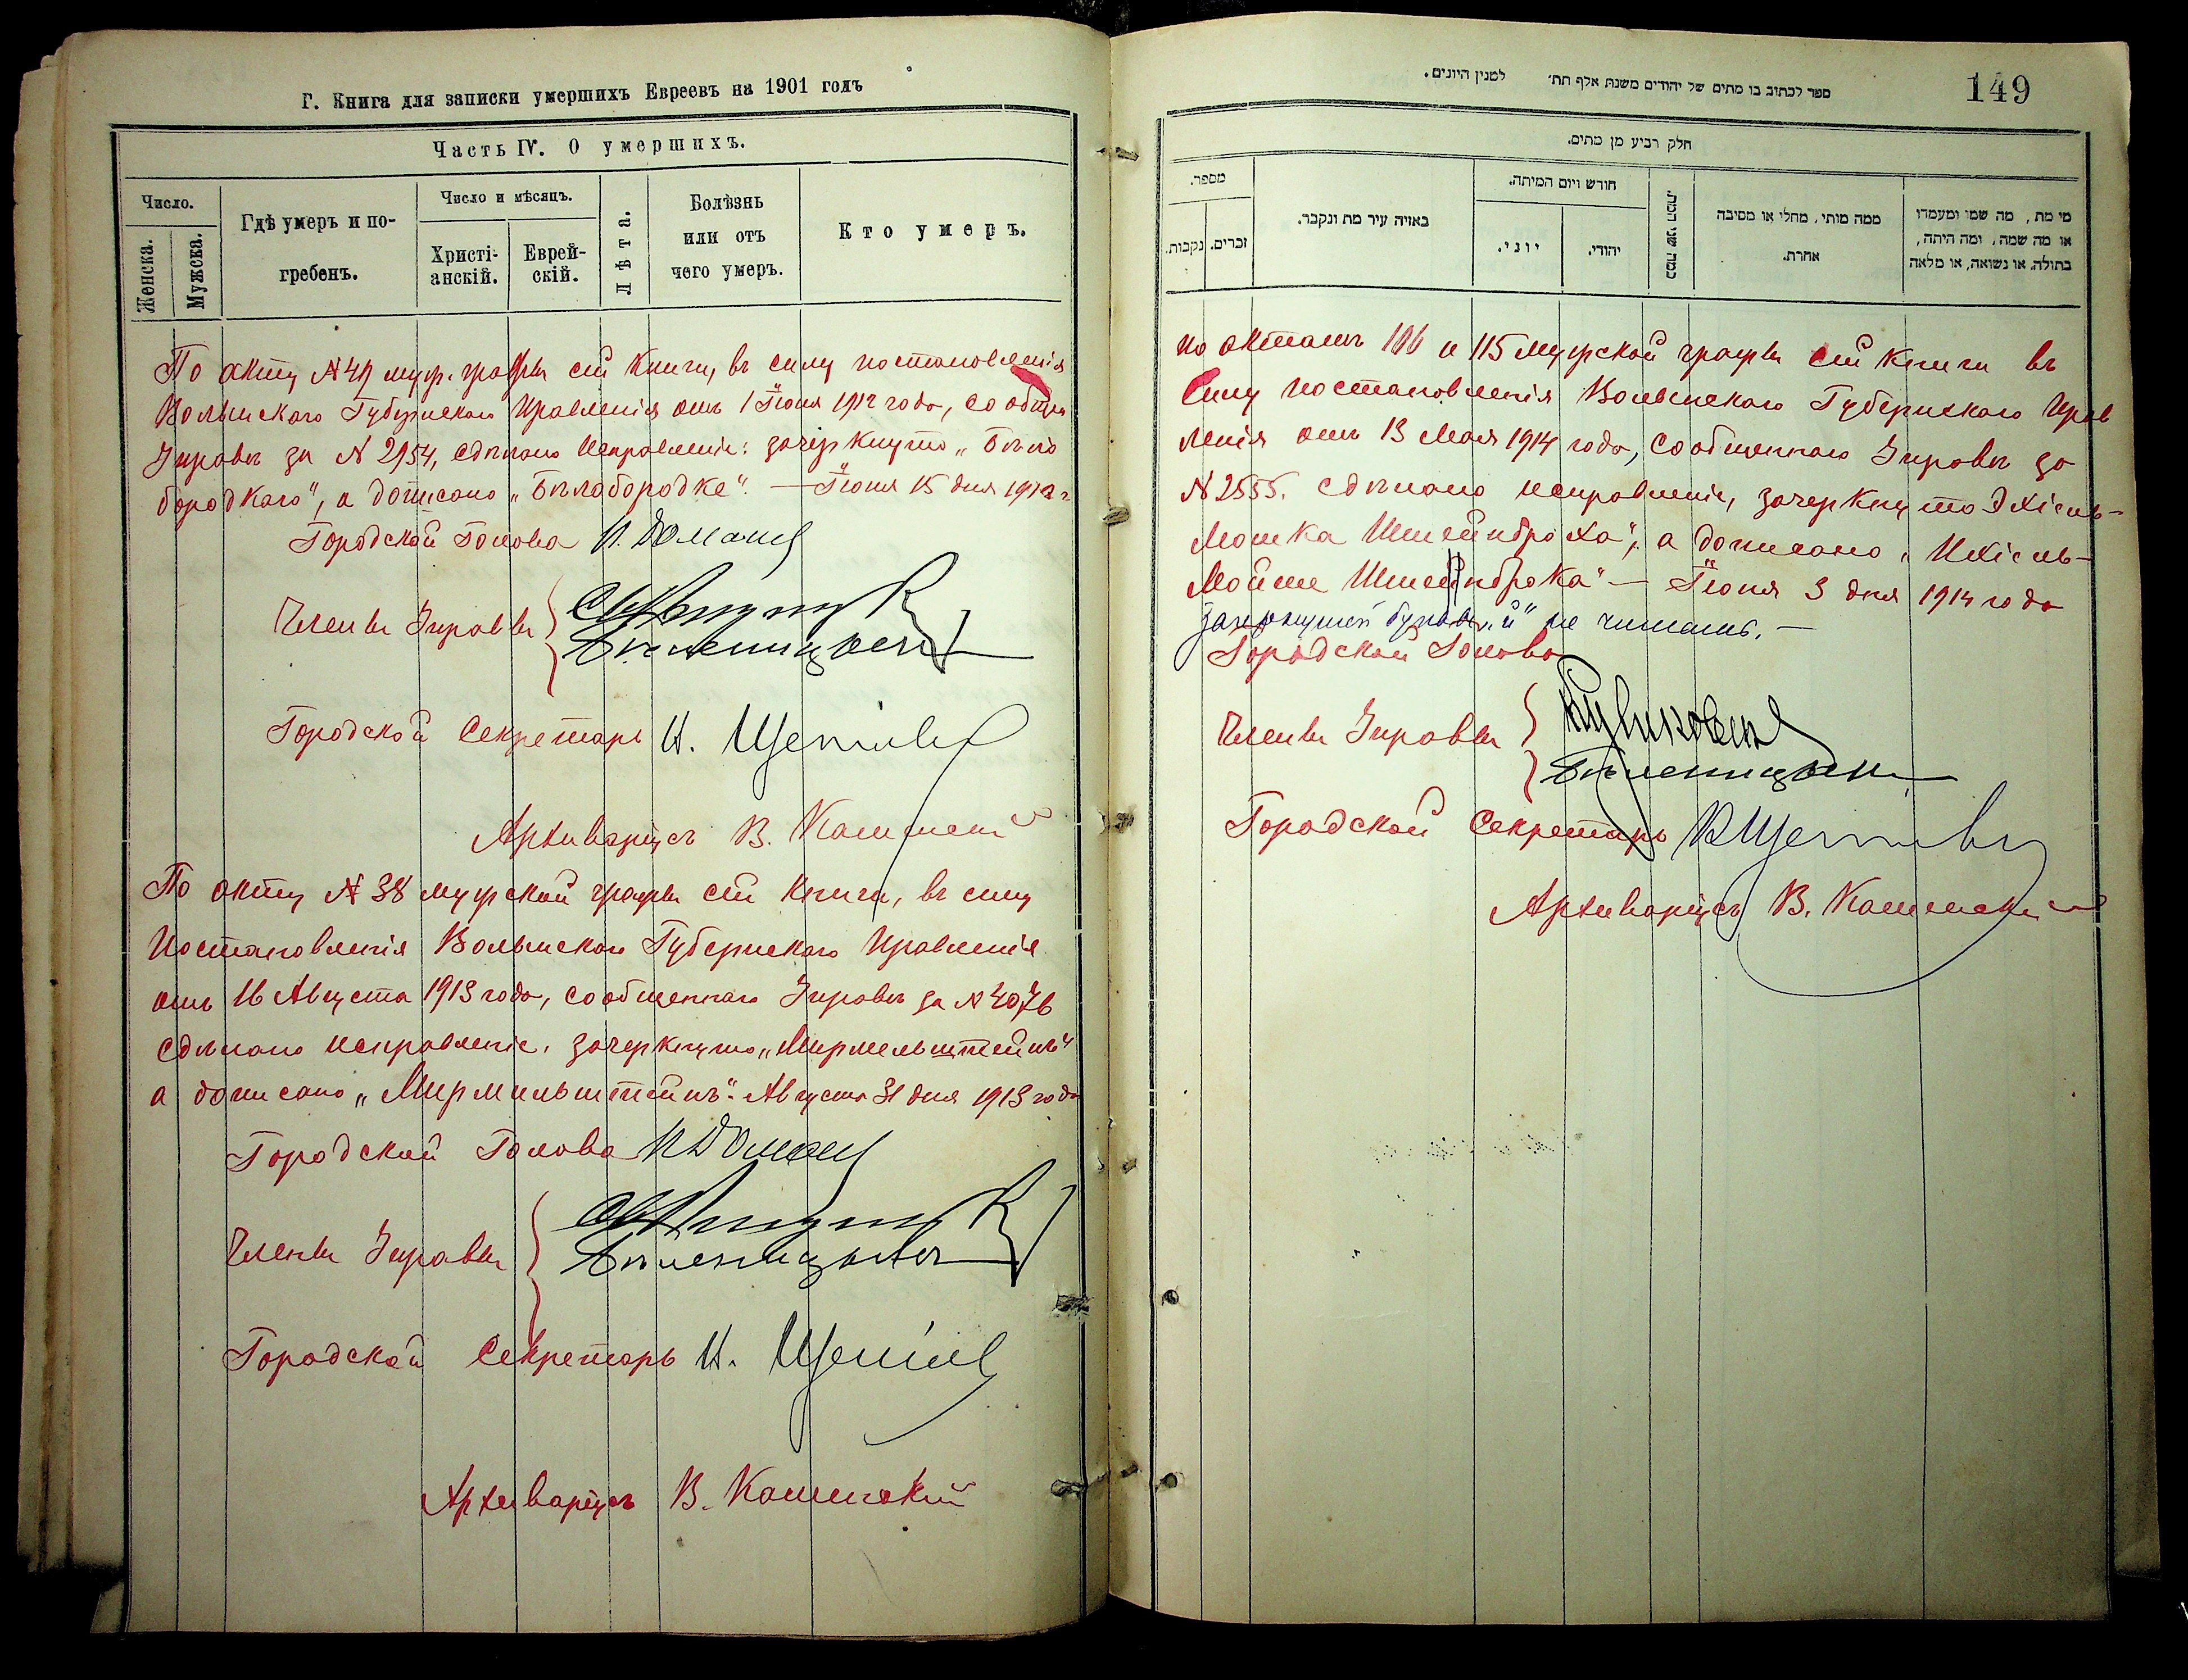 Г. Книга для записки умершихъ Евреевъ на 1901 годъ
Часть IV. О умершихъ.
Число.
Женска.
Мужска.
Гдѣ умеръ и по-
гребенъ.
Число и мѣсяцъ.
Христі-
анскій.
Еврей-
скій.
Лѣта.
Болѣзнь
или отъ
чего умеръ.
Кто умеръ.
По акту № муж. графы сей книги, въ силу постановленія
Волынскаго Губернскаго Правленія отъ 1 Іюня 1912 года, сообщен
Управѣ за № 2954, сдѣлано исправленіе: зачеркнуто „Бѣло
бородкаго", а дописано „Бѣлобородке". — Іюня 15 дня 1912 г
Городской Голова
Члены Управы
Городской Секретарь
Архиваріусъ В. Каменскій
По акту № 38 мужской графы сей книги, въ силу
Постановленія Волынскаго Губернскаго Правленія
отъ 16 Августа 1913 года, сообщеннаго Управѣ за № 4076
сдѣлано исправленіе, зачеркнуто „Мирмельштейнъ"
а дописано „Мирмильштейнъ". Августа 31 дня 1913 года
Городской Голова
Члены Управы
Городской Секретарь
Архиваріусъ В. Каменскій
ספר לכתוב בו מתים של יהודים משנת אלף תת׳ למנין היונים.
149
חלק רביע מן מתים.
מספר.
נקבות.
זכרים.
באיזה עיר מת ונקבר.
חודש ויום המיתה.
יוני.
יהודי.
כמה שני המת.
ממה מותו, מחלי או מסיבה
אחרת.
מי מת, מה שמו ומעמדו
או מה שמה, ומה היתה,
בתולה, או נשואה, או מלאה
по актамъ 106 и 115 мужской графы сей книги въ
силу постановленія Волынскаго Губернскаго Прав
ленія отъ 13 Мая 1914 года, сообщеннаго Управѣ за
№ 2555. сдѣлано исправленіе, зачеркнуто „Эхіель-
Мошка Штейнброха", а дописано „Ихіель-
Мойше Штейнброка" — Іюня 3 дня 1914 года
зачеркнутой буквы „й" не читать. —
Городской Голова
Члены Управы
Городской Секретарь
Архиваріусъ В. Каменскій